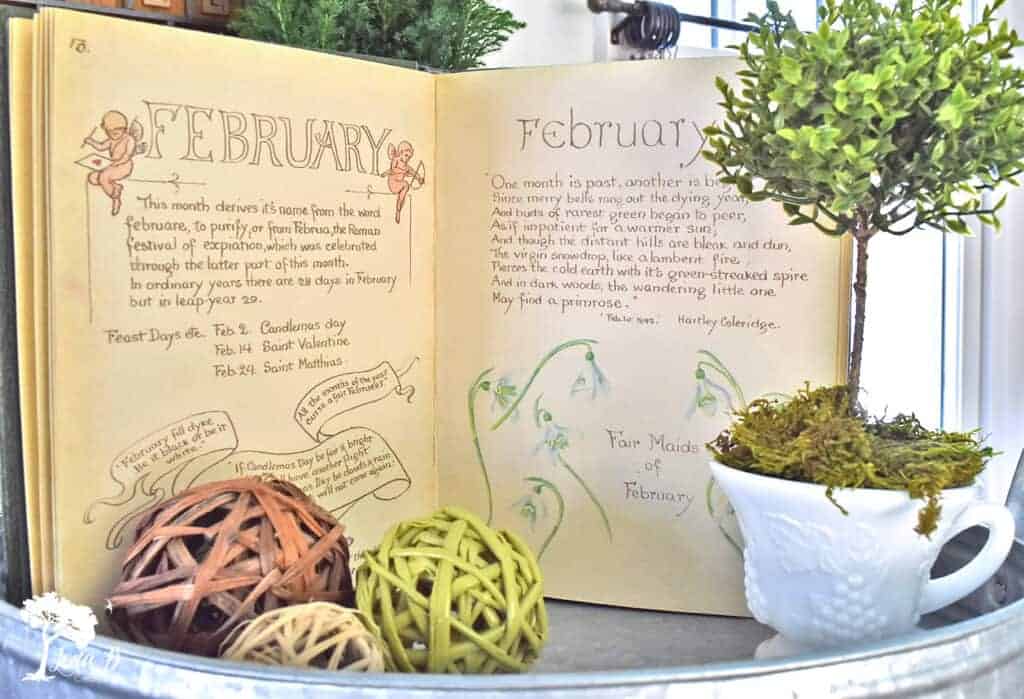 FEBRUARY
This month derives it's name from the word
februare, to purify, or from Februa, the Roman
festival of expiation, which was celebrated
through the latter part of this month.
In ordinary years there are 28 days in February
but in leap-year 29.
Feast Days etc. Feb. 2. Candlemas day
Feb. 14. Saint Valentine
Feb. 24. Saint Matthias.
All the months of the year
curse a fair Februeer."
"February fill dyke
Be it black or be it
white."
"If Candlemas Day be fair & bright
have another flight
Day be clouds & rain
will not come again."
February
"One month is past, another is
Since merry bells rang out the dying year,
And buds of rarest green began to peer,
As if impatient for a warmer sun;
And though the distant hills are bleak and dun,
The virgin snowdrop, like a lambent fire,
Pierces the cold earth with it's green-streaked spire
And in dark woods, the wandering little one
May find a primrose."
Hartley Coleridge.
Fair Maids
of
February